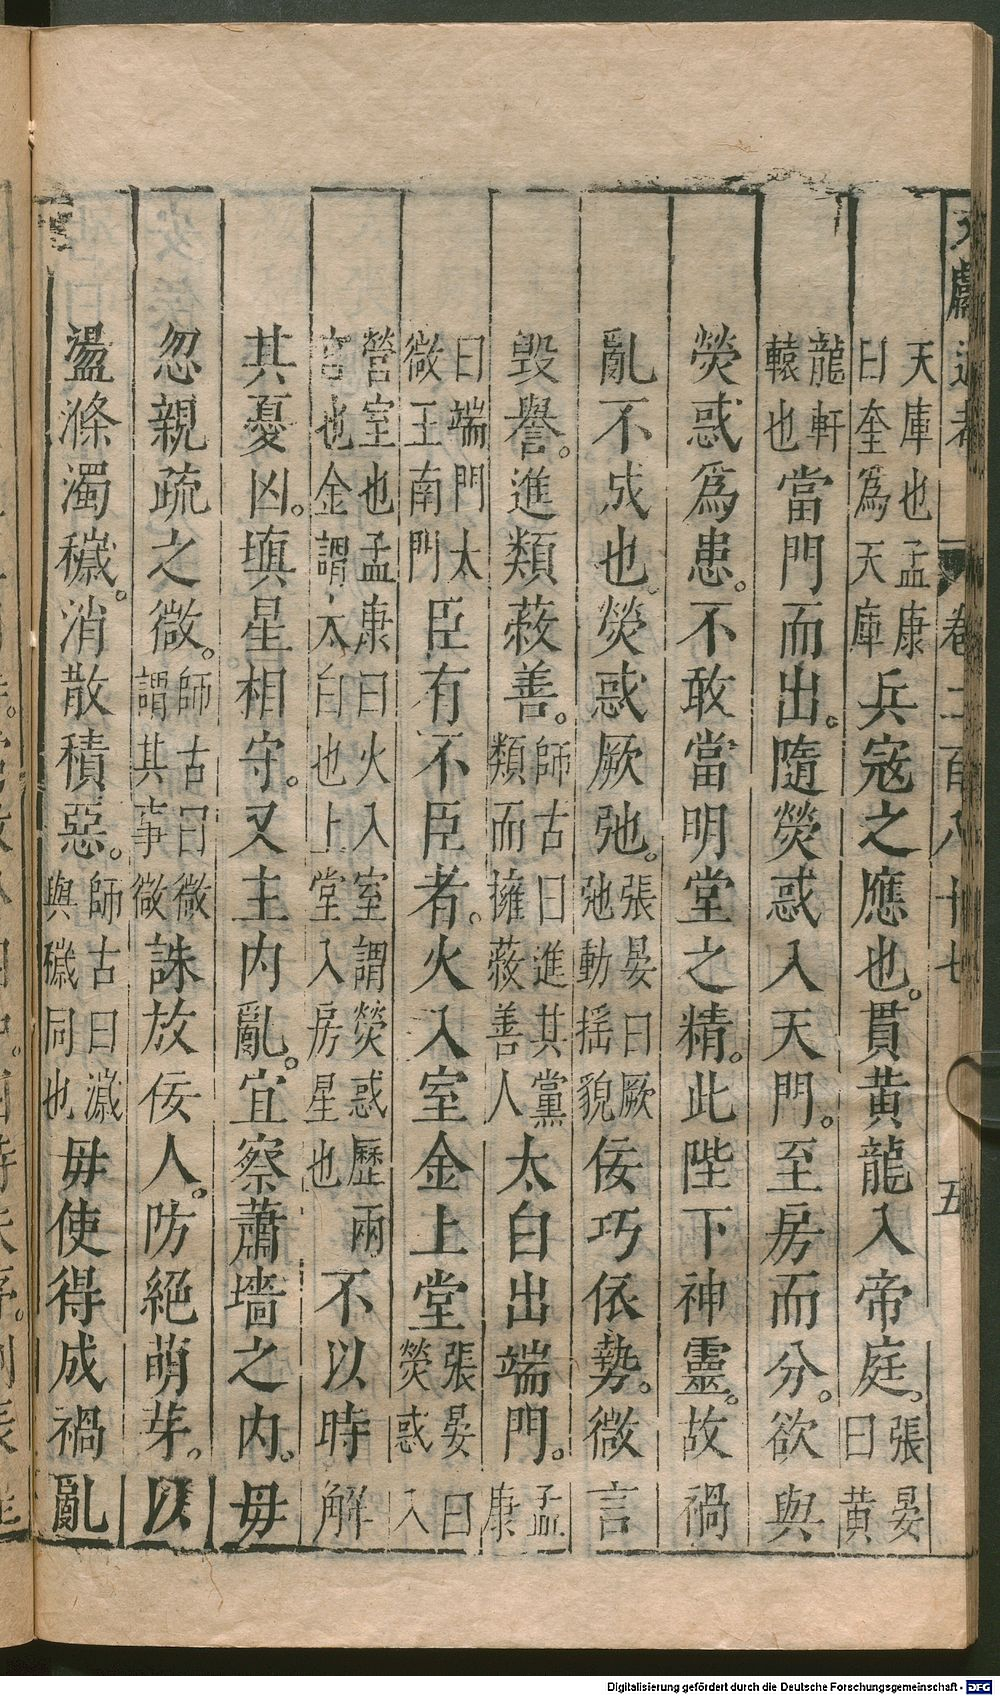 文獻通考 卷二百八十七 五
天庫也孟康曰奎爲天庫兵寇之應也。貫黃龍入帝庭。張晏曰黃
龍軒轅也當門而出。隨熒惑入天門。至房而分。欲與
熒惑爲患。不敢當明堂之精。此陛下神靈。故禍
亂不成也。熒惑厥弛。張晏曰厥弛動搖貌佞巧依勢。微言
毀譽。進類蔽善。師古曰進其黨類而擁蔽善人太白出端門。孟康
曰端門太微王南門臣有不臣者。火入室金上堂張晏曰熒惑入
營室也孟康曰火入室謂熒惑歷兩宮也金謂太白也上堂入房星也不以時解
其憂凶。塡星相守。又主内亂。宜察蕭墻之内。毋
忽親疏之微。師古曰微謂其事微誅放佞人。防絕萌芽。以
盪滌濁穢。消散積惡。師古曰濊與穢同也毋使得成禍亂
Digitalisierung gefördert durch die Deutsche Forschungsgemeinschaft - DFG